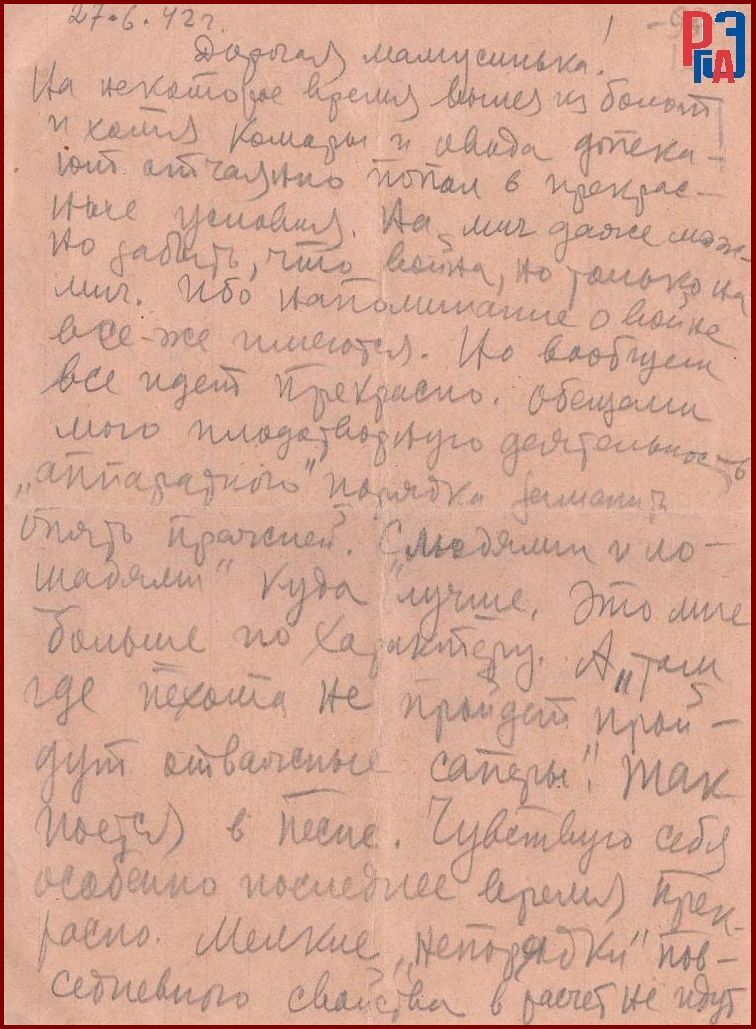 27.6.42г.
1
РГАЭ
Дорогая мамусинька.
На некоторое время вышел из болот
и хотя комары и овода допека-
ют отчаянно попал в прекрас-
ные условия. На миг даже мож-
но забыть, что война, но только на
миг. Ибо напоминание о войне
все-же имеются. Но вообщем
все идет прекрасно. Обещали
мою плодотворную деятельность
„аппаратного" порядка заменить
опять прежней. С „людями и ло-
шадями" куда лучше. Это мне
больше по характеру. А „там
где пехота не пройдет прой-
дут отважные саперы". Так
поется в песне. Чувствую себя
особенно последнее время прек-
расно. Мелкие „непорядки" пов-
седневного свойства в расчет не идут